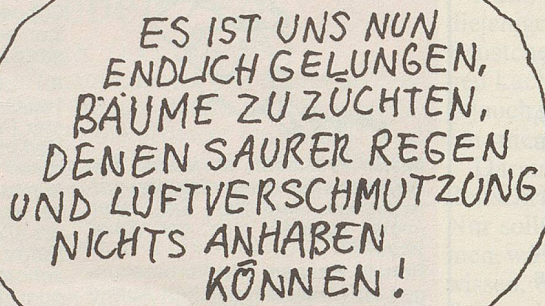 ES IST UNS NUN
ENDLICH GELUNGEN,
BÄUME ZU ZÜCHTEN,
DENEN SAURER REGEN
UND LUFTVERSCHMUTZUNG
NICHTS ANHABEN
KÖNNEN!